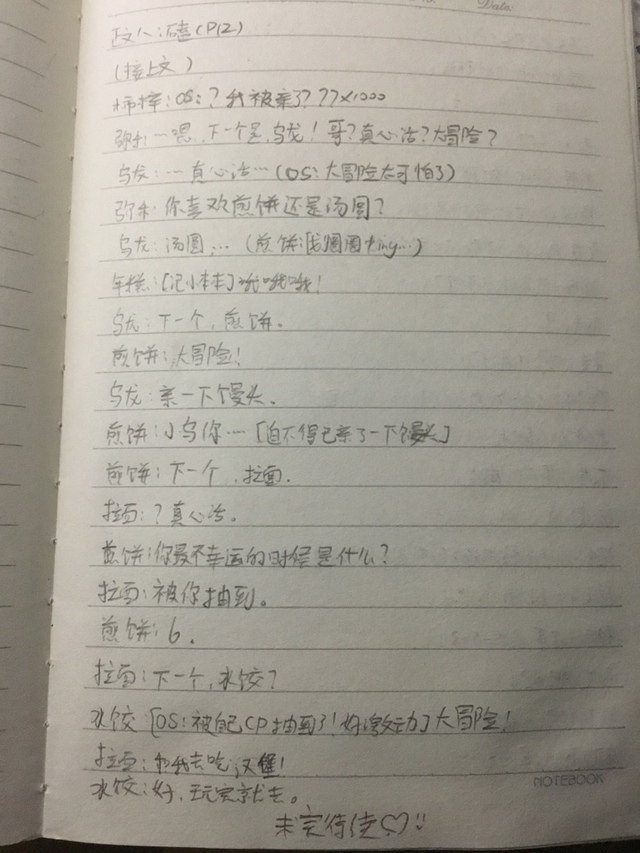 Date:
正文八:磕CP(2)
(接上文)
柿梓:OS:?我被亲了???x1000
弥禾:…嗯,下一个是,乌龙!哥?真心话?大冒险?
乌龙:…真心话…(OS:大冒险太可怕了)
弥禾:你喜欢煎饼还是汤圆?
乌龙:汤圆…(煎饼:我圈圈ting…)
年糕:[记小本本]哦哦哦!
乌龙:下一个,煎饼。
煎饼:大冒险!
乌龙:亲一下馒头。
煎饼:小乌你…[迫不得已亲了一下馒头]
煎饼:下一个,拉面.
拉面:?真心话。
煎饼:你最不幸运的时候是什么?
拉面:被你抽到。
煎饼:6.
拉面:下一个,水饺?
水饺[OS:被自己CP抽到了!好激动]大冒险!
拉面:和我去吃汉堡!
水饺:好,玩完就去。
NOTEBOOK
未完待续♡:)